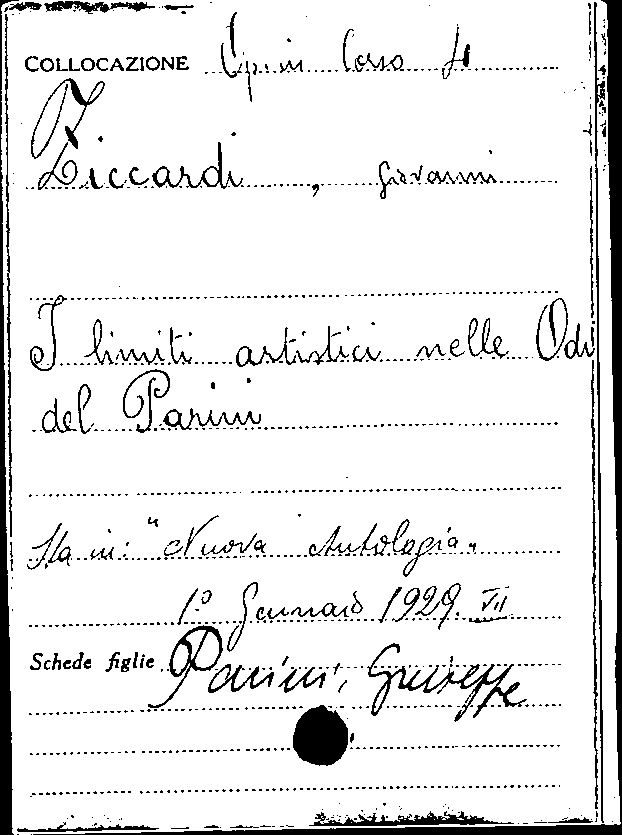 COLLOCAZIONE Opusc Corso 4
Ziccardi, Giovanni
I limiti artistici nelle Odi
del Parini
Sta in: "Nuova Antologia"
1° Gennaio 1929. VII
Schede figlie Parini, Giuseppe